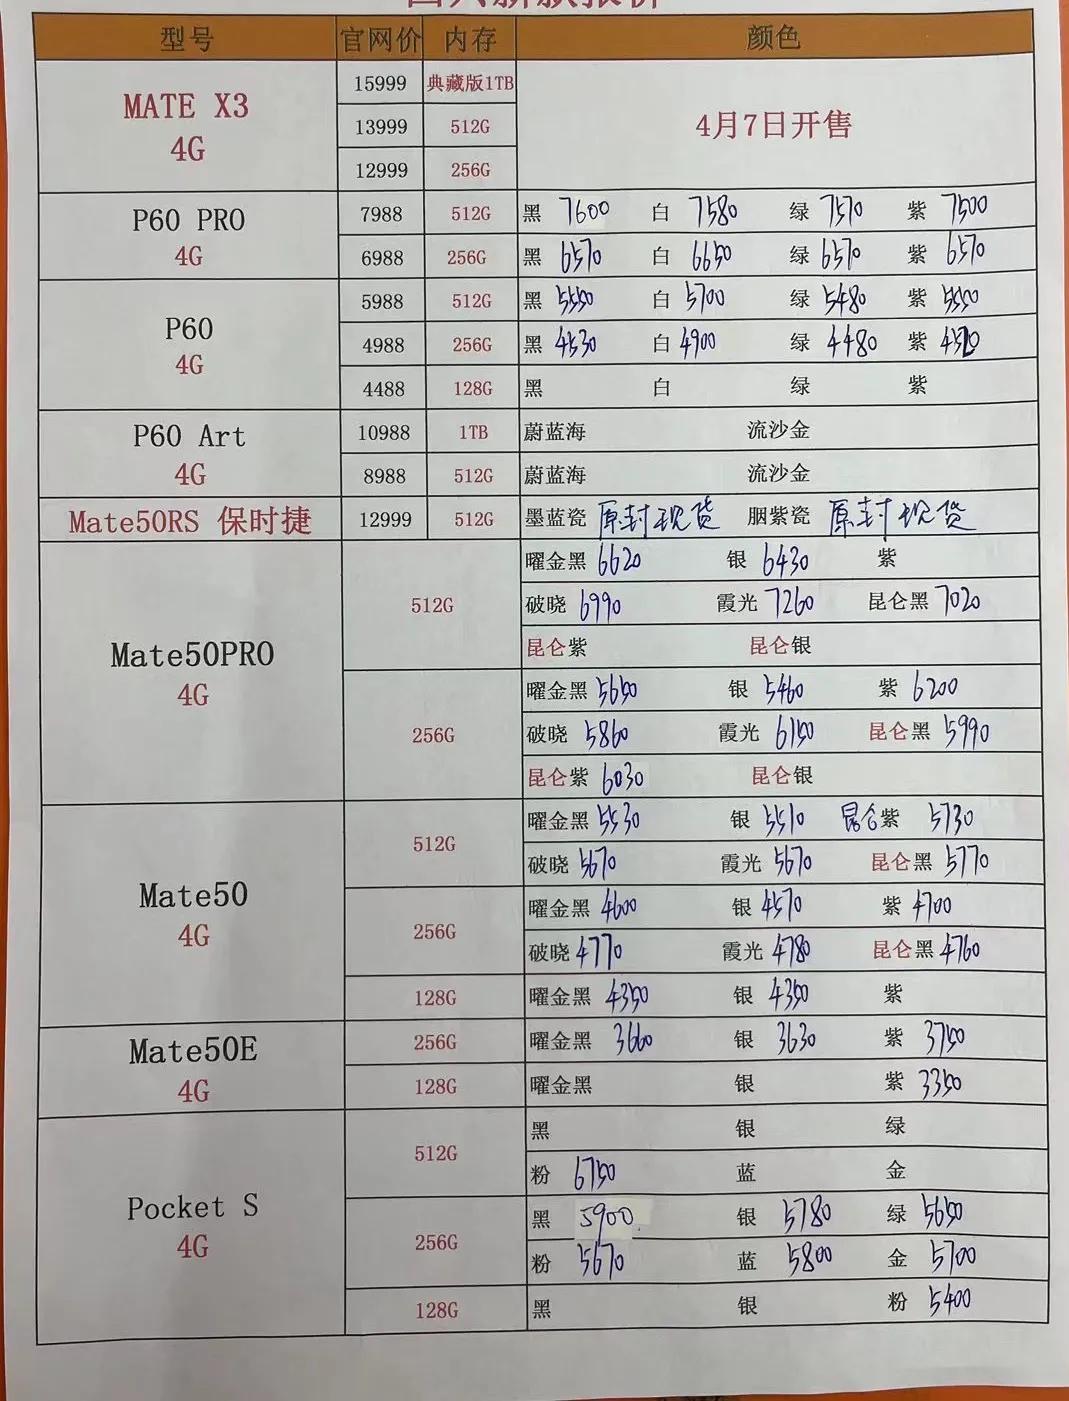 型号 官网价 内存 颜色
MATE X3 4G
15999 典藏版1TB
13999 512G
12999 256G
4月7日开售
P60 PRO 4G
7988 512G 黑 7600 白 7580 绿 7570 紫 7500
6988 256G 黑 6570 白 6650 绿 6570 紫 6570
P60 4G
5988 512G 黑 5550 白 5700 绿 5480 紫 5550
4988 256G 黑 4530 白 4900 绿 4480 紫
4488 128G 黑 白 绿 紫
P60 Art 4G
10988 1TB 蔚蓝海 流沙金
8988 512G 蔚蓝海 流沙金
Mate50RS 保时捷 12999 512G 墨蓝瓷 原封现货 胭紫瓷 原封现货
Mate50PRO 4G
512G
曜金黑 6620 银 6430 紫
破晓 6990 霞光 7260 昆仑黑 7020
昆仑紫 昆仑银
256G
曜金黑 5650 银 5460 紫 6200
破晓 5860 霞光 6150 昆仑黑 5990
昆仑紫 6030 昆仑银
Mate50 4G
512G
曜金黑 5530 银 5510 昆仑紫 5730
破晓 5670 霞光 5670 昆仑黑 5770
256G
曜金黑 4600 银 4570 紫 4700
破晓 4770 霞光 4780 昆仑黑 4760
128G
曜金黑 4350 银 4350 紫
Mate50E 4G
256G 曜金黑 3660 银 3630 紫 3750
128G 曜金黑 银 紫 3350
Pocket S 4G
512G
黑 银 绿
粉 6750 蓝 金
256G
黑 5900 银 5780 绿 5650
粉 5670 蓝 5800 金 5700
128G
黑 银 粉 5400